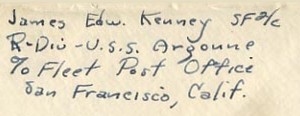 James Edw. Kenney SF2/c
R-Div-U.S.S. Argonne
℅ Fleet Post Office
San Francisco, Calif.